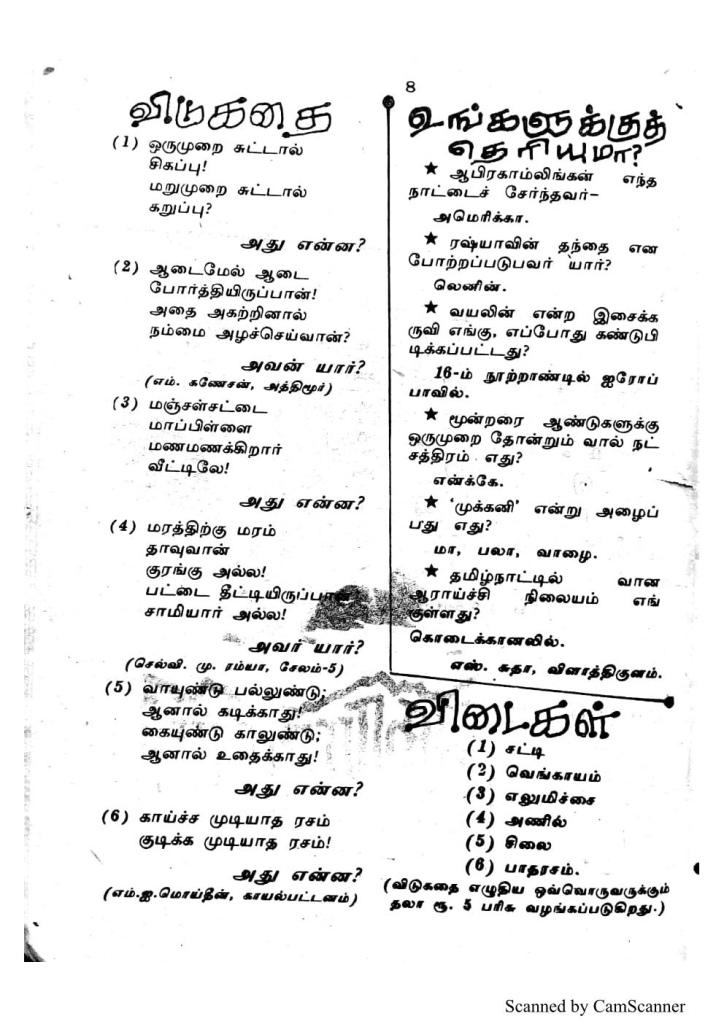 8
விடுகதை
(1) ஒருமுறை சுட்டால்
சிகப்பு!
மறுமுறை சுட்டால்
கறுப்பு?
அது என்ன?
(2) ஆடைமேல் ஆடை
போர்த்தியிருப்பான்!
அதை அகற்றினால்
நம்மை அழச்செய்வான்?
அவன் யார்?
(எம். கணேசன், அத்திமூர்)
(3) மஞ்சள்சட்டை
மாப்பிள்ளை
மணமணக்கிறார்
வீட்டிலே!
அது என்ன?
(4) மரத்திற்கு மரம்
தாவுவான்
குரங்கு அல்ல!
பட்டை தீட்டியிருப்பான்
சாமியார் அல்ல!
அவர் யார்?
(செல்வி. மு. ரம்யா, சேலம்-5)
(5) வாயுண்டு பல்லுண்டு;
ஆனால் கடிக்காது!
கையுண்டு காலுண்டு;
ஆனால் உதைக்காது!
அது என்ன?
(6) காய்ச்ச முடியாத ரசம்
குடிக்க முடியாத ரசம்!
அது என்ன?
(எம்.ஐ.மொய்தீன், காயல்பட்டனம்)
உங்களுக்குத்
தெரியுமா?
★ ஆபிரகாம்லிங்கன் எந்த
நாட்டைச் சேர்ந்தவர்–
அமெரிக்கா.
★ ரஷ்யாவின் தந்தை என
போற்றப்படுபவர் யார்?
லெனின்.
★ வயலின் என்ற இசைக்க
ருவி எங்கு, எப்போது கண்டுபி
டிக்கப்பட்டது?
16-ம் நூற்றாண்டில் ஐரோப்
பாவில்.
★ மூன்றரை ஆண்டுகளுக்கு
ஒருமுறை தோன்றும் வால் நட்
சத்திரம் எது?
என்க்கே.
★ 'முக்கனி' என்று அழைப்
பது எது?
மா, பலா, வாழை.
★ தமிழ்நாட்டில் வான
ஆராய்ச்சி நிலையம் எங்
குள்ளது?
கொடைக்கானலில்.
எஸ். சுதா, விளாத்திகுளம்.
விடைகள்
(1) சட்டி
(2) வெங்காயம்
(3) எலுமிச்சை
(4) அணில்
(5) சிலை
(6) பாதரசம்.
(விடுகதை எழுதிய ஒவ்வொருவருக்கும்
தலா ரூ. 5 பரிசு வழங்கப்படுகிறது.)
Scanned by CamScanner